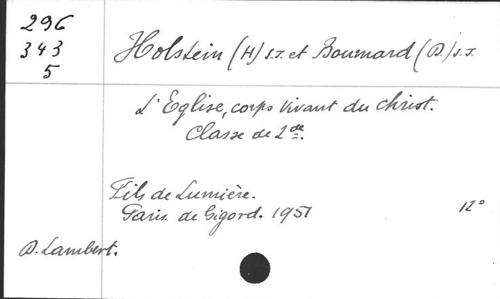 296
343
5
Holstein (H) s.J. et Boumard (D) s.J.
L'Eglise, corps vivant du Christ.
Classe de 2de.
Fils de Lumière.
Paris. de Gigord. 1951
12°
D. Lambert.